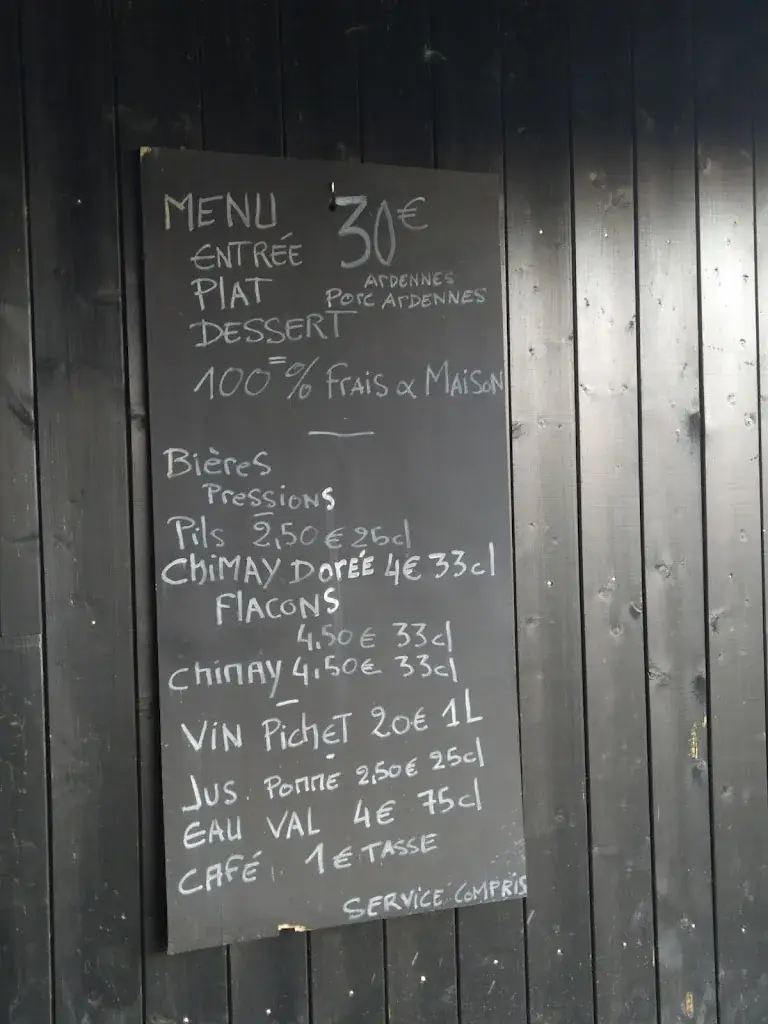 MENU 30€
ENTRÉE
PLAT ARDENNES
PORC ARDENNES
DESSERT
100% FRAIS & MAISON
Bières
Pressions
Pils 2,50 € 25cl
CHIMAY DORÉE 4€ 33cl
FLACONS
4,50 € 33cl
CHIMAY 4,50€ 33cl
VIN PICHET 20€ 1L
JUS. POMME 2,50€ 25cl
EAU VAL 4€ 75cl
CAFÉ 1€ TASSE
SERVICE COMPRIS